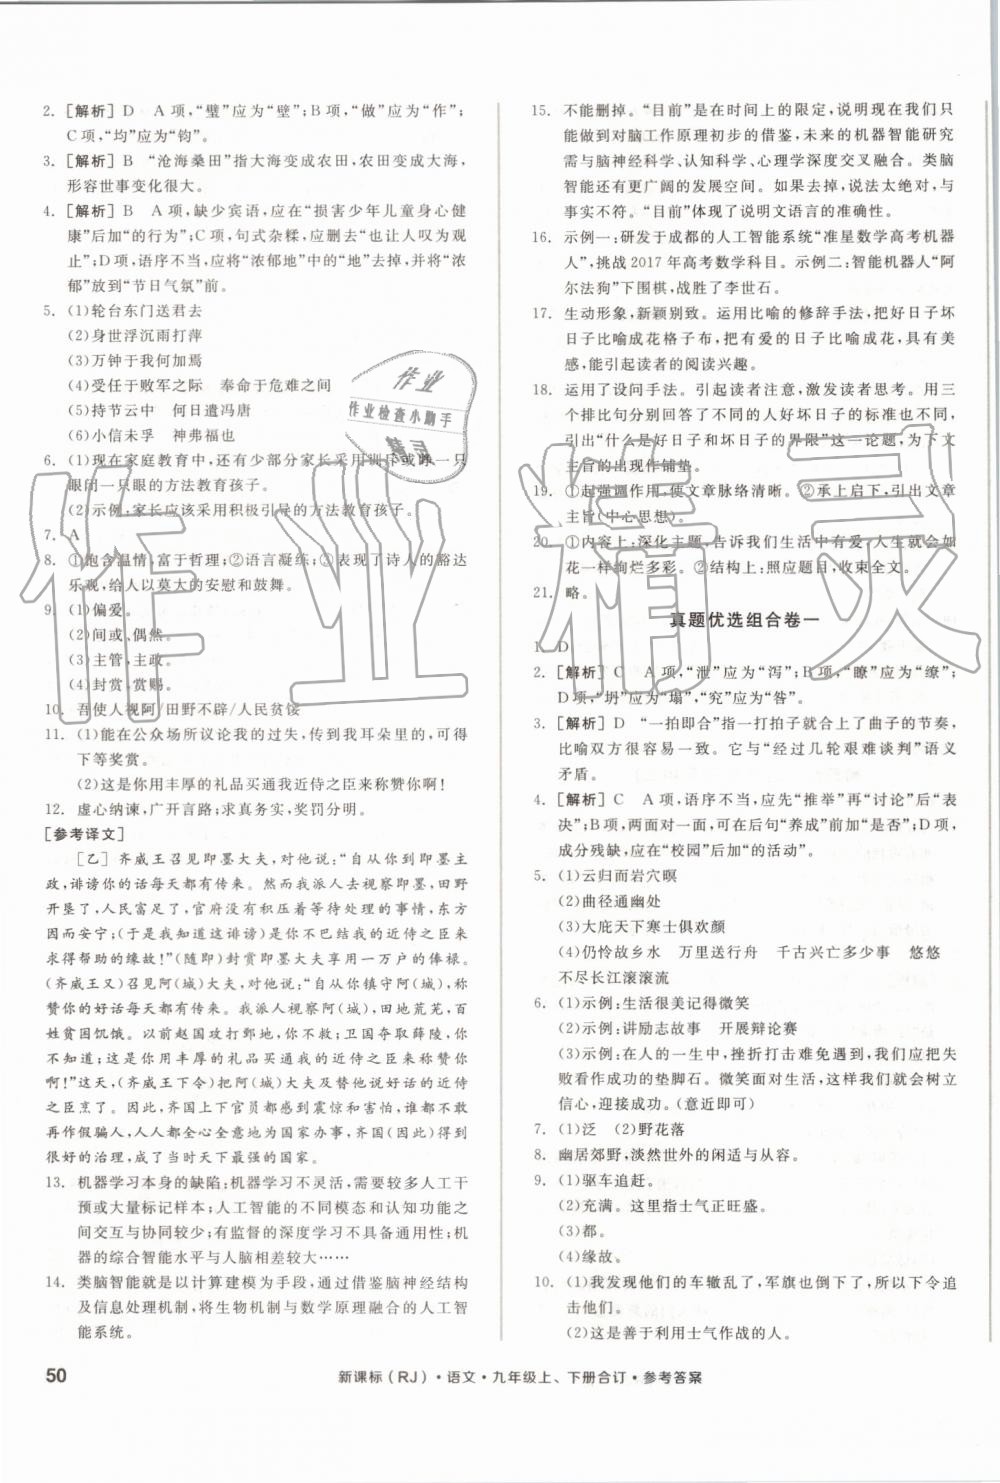 2. [解析] D　A 项,“璧”应为“壁”;B 项,“做”应为“作”;
C 项,“均”应为“钧”。
3. [解析] B　“沧海桑田”指大海变成农田,农田变成大海,
形容世事变化很大。
4. [解析] B　A 项,缺少宾语,应在“损害少年儿童身心健
康”后加“的行为”;C 项,句式杂糅,应删去“也让人叹为观
止”;D 项,语序不当,应将“浓郁地”中的“地”去掉,并将“浓
郁”放到“节日气氛”前。
5. (1)轮台东门送君去
(2)身世浮沉雨打萍
(3)万钟于我何加焉
(4)受任于败军之际　奉命于危难之间
(5)持节云中　何日遣冯唐
(6)小信未孚　神弗福也
6. (1)现在家庭教育中,还有少部分家长采用训斥或睁一只
眼闭一只眼的方法教育孩子。
(2)示例:家长应该采用积极引导的方法教育孩子。
7. A
8. ①饱含温情,富于哲理;②语言凝练;③表现了诗人的豁达
乐观,给人以莫大的安慰和鼓舞。
9. (1)偏爱。
(2)间或、偶然。
(3)主管,主政。
(4)封赏,赏赐。
10. 吾使人视阿/田野不辟/人民贫馁
11. (1)能在公众场所议论我的过失,传到我耳朵里的,可得
下等奖赏。
(2)这是你用丰厚的礼品买通我近侍之臣来称赞你啊!
12. 虚心纳谏,广开言路;求真务实,奖罚分明。
[参考译文]
[乙] 齐威王召见即墨大夫,对他说:“自从你到即墨主
政,诽谤你的话每天都有传来。然而我派人去视察即墨,田野
开垦了,人民富足了,官府没有积压着等待处理的事情,东方
因而安宁;(于是我知道这诽谤)是你不巴结我的近侍之臣来
求得帮助的缘故!”(随即)封赏即墨大夫享用一万户的俸禄。
(齐威王又)召见阿(城)大夫,对他说:“自从你镇守阿(城),称
赞你的好话每天都有传来。我派人视察阿(城),田地荒芜,百
姓贫困饥饿。以前赵国攻打鄄地,你不去救;卫国夺取薛陵,你
不知道;这是你用丰厚的礼品买通我的近侍之臣来称赞你
啊!”这天,(齐威王下令)把阿(城)大夫及替他说好话的近侍
之臣烹了。因此,齐国上下官员都感到震惊和害怕,谁都不敢
再作假背弊,人人都全心全意地为国家办事,齐国(因此)得到
很好的治理,成为天下最强的国家。
13. 机器学习本身的缺陷;机器学习不灵活,需要较多人工干
预或大量标记样本;人工智能的不同模态和认知功能之
间交互与协同较少;有监督的深度学习不具备通用性;机
器的综合智能水平与人脑相差较大……
14. 类脑智能就是以计算建模为手段,通过借鉴脑神经结构
及信息处理机制,将生物机制与数学原理融合的人工智
能系统。
15. 不能删掉。“目前”是在时间上的限定,说明现在我们只
能做到对脑工作原理初步的借鉴,未来的机器智能研究
需与脑神经科学、认知科学、心理学深度交叉融合。类脑
智能还有更广阔的发展空间。如果去掉,说法太绝对,与
事实不符。“目前”体现了说明文语言的准确性。
16. 示例一:研发于成都的人工智能系统“准星数学高考机器
人”,挑战 2017 年高考数学科目。示例二:智能机器人“阿
尔法狗”下围棋,战胜了李世石。
17. 生动形象,新颖别致。运用比喻的修辞手法,把好日子坏
日子比喻成花格子布,把有爱的好日子比喻成花,有美
感,能引起读者的阅读兴趣。
18. 运用了设问手法。引起读者注意,激发读者思考。用三
个排比句分别回答了不同的人好坏日子的标准也不同,
引出“什么是好日子和坏日子的界限”这一论题,为下文
主旨的出现作铺垫。
19. ①起强调作用,使文章脉络清晰。②承上启下,引出文章
主旨(中心思想)。
20. ①内容上:深化主题,告诉我们生活中有爱,人生就会如
花一样绚烂多彩。②结构上:照应题目,收束全文。
21. 略。
真题优选组合卷一
1. D
2. [解析] C　A 项,“泄”应为“泻”;B 项,“瞭”应为“缭”;
D 项,“坍”应为“塌”,“究”应为“咎”。
3. [解析] D　“一拍即合”指一打拍子就合上了曲子的节奏,
比喻双方很容易一致。它与“经过几轮艰难谈判”语义
矛盾。
4. [解析] C　A 项,语序不当,应先“推举”再“讨论”后“表
决”;B 项,两面对一面,可在后句“养成”前加“是否”;D 项,
成分残缺,应在“校园”后加“的活动”。
5. (1)云归而岩穴暝
(2)曲径通幽处
(3)大庇天下寒士俱欢颜
(4)仍怜故乡水　万里送行舟　千古兴亡多少事　悠悠
不尽长江滚滚流
6. (1)示例:生活很美记得微笑
(2)示例:讲励志故事　开展辩论赛
(3)示例:在人的一生中,挫折打击难免遇到,我们应把失
败看作成功的垫脚石。微笑面对生活,这样我们就会树立
信心,迎接成功。(意近即可)
7. (1)泛　(2)野花落
8. 幽居郊野,淡然世外的闲适与从容。
9. (1)驱车追赶。
(2)充满。这里指士气正旺盛。
(3)都。
(4)缘故。
10. (1)我发现他们的车辙乱了,军旗也倒下了,所以下令追
击他们。
(2)这是善于利用士气作战的人。
50
新课标(RJ)·语文·九年级上、下册合订·参考答案
作业
作业检查小助手
精灵
作业精灵